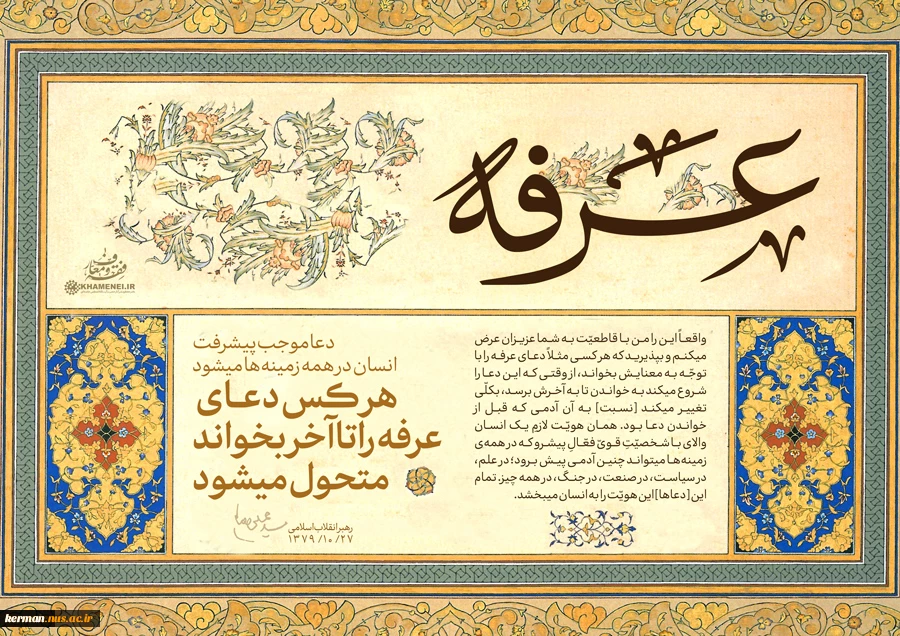 عرفه
فقه و معارف
KHAMENEI.IR
واقعاً این را من با قاطعیّت به شما عزیزان عرض
میکنم و بپذیرید که هر کسی مثلاً دعای عرفه را با
توجّه به معنایش بخواند، از وقتی که این دعا را
شروع میکند به خواندن تا به آخرش برسد، بکلّی
تغییر میکند [نسبت] به آن آدمی که قبل از
خواندن دعا بود. همان هویّت لازمِ یک انسان
والای با شخصیّتِ قویّ فعّالِ پیشرو که در همه‌ی
زمینه‌ها میتواند چنین آدمی پیش برود؛ در علم،
در سیاست، در صنعت، در جنگ، در همه چیز. تمام
این [دعاها] این هویّت را به انسان میبخشد.
دعا موجب پیشرفت
انسان در همه زمینه‌ها میشود
هر کس دعـای
عرفه را تا آخر بخواند
متحول میشود
رهبر انقلاب اسلامی
۱۳۷۹/۱۰/۲۷
kerman.nus.ac.ir